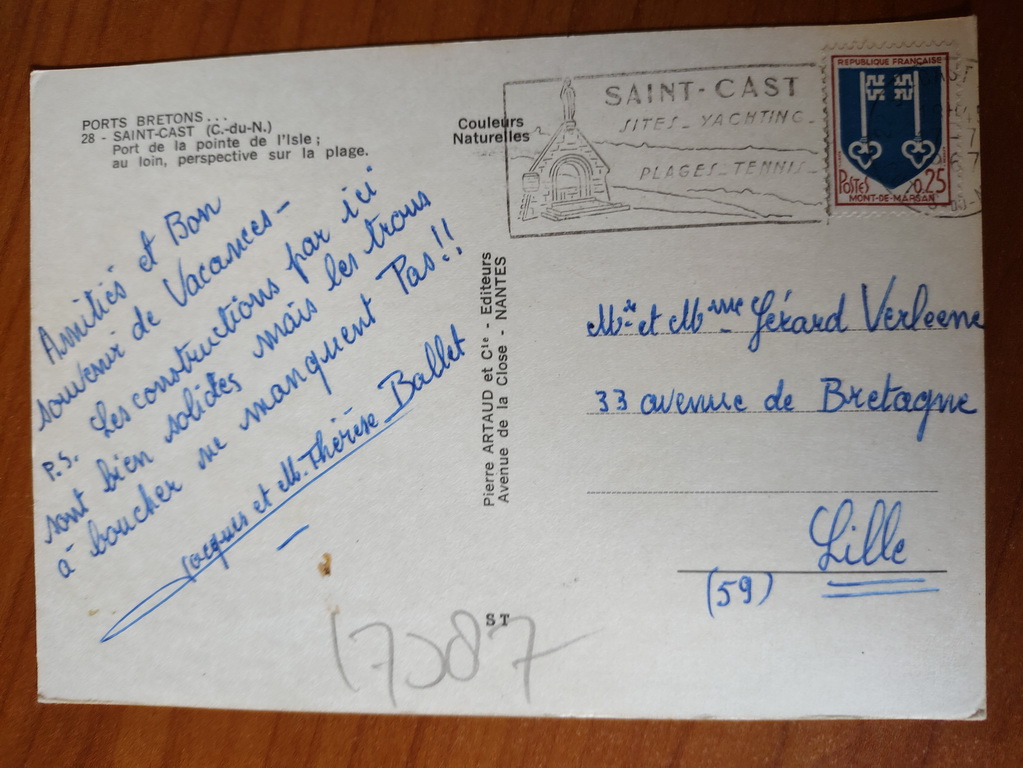 PORTS BRETONS...
28 - SAINT-CAST (C.-du-N.)
Port de la pointe de l'Isle ;
au loin, perspective sur la plage.
Couleurs
Naturelles
SAINT-CAST
SITES_YACHTING_
PLAGES_TENNIS_
REPUBLIQUE FRANÇAISE
POSTES 0,25
MONT-DE-MARSAN
Amitiés et Bon
souvenir de Vacances -
P.S. Les constructions par ici
sont bien solides mais les trous
à boucher ne manquent Pas!!
Jacques et M. Thérèse Ballet
Pierre ARTAUD et Cie - Editeurs
Avenue de la Close - NANTES
Mr et Mme Gérard Verleene
33 avenue de Bretagne
Lille
(59)
ST
17087